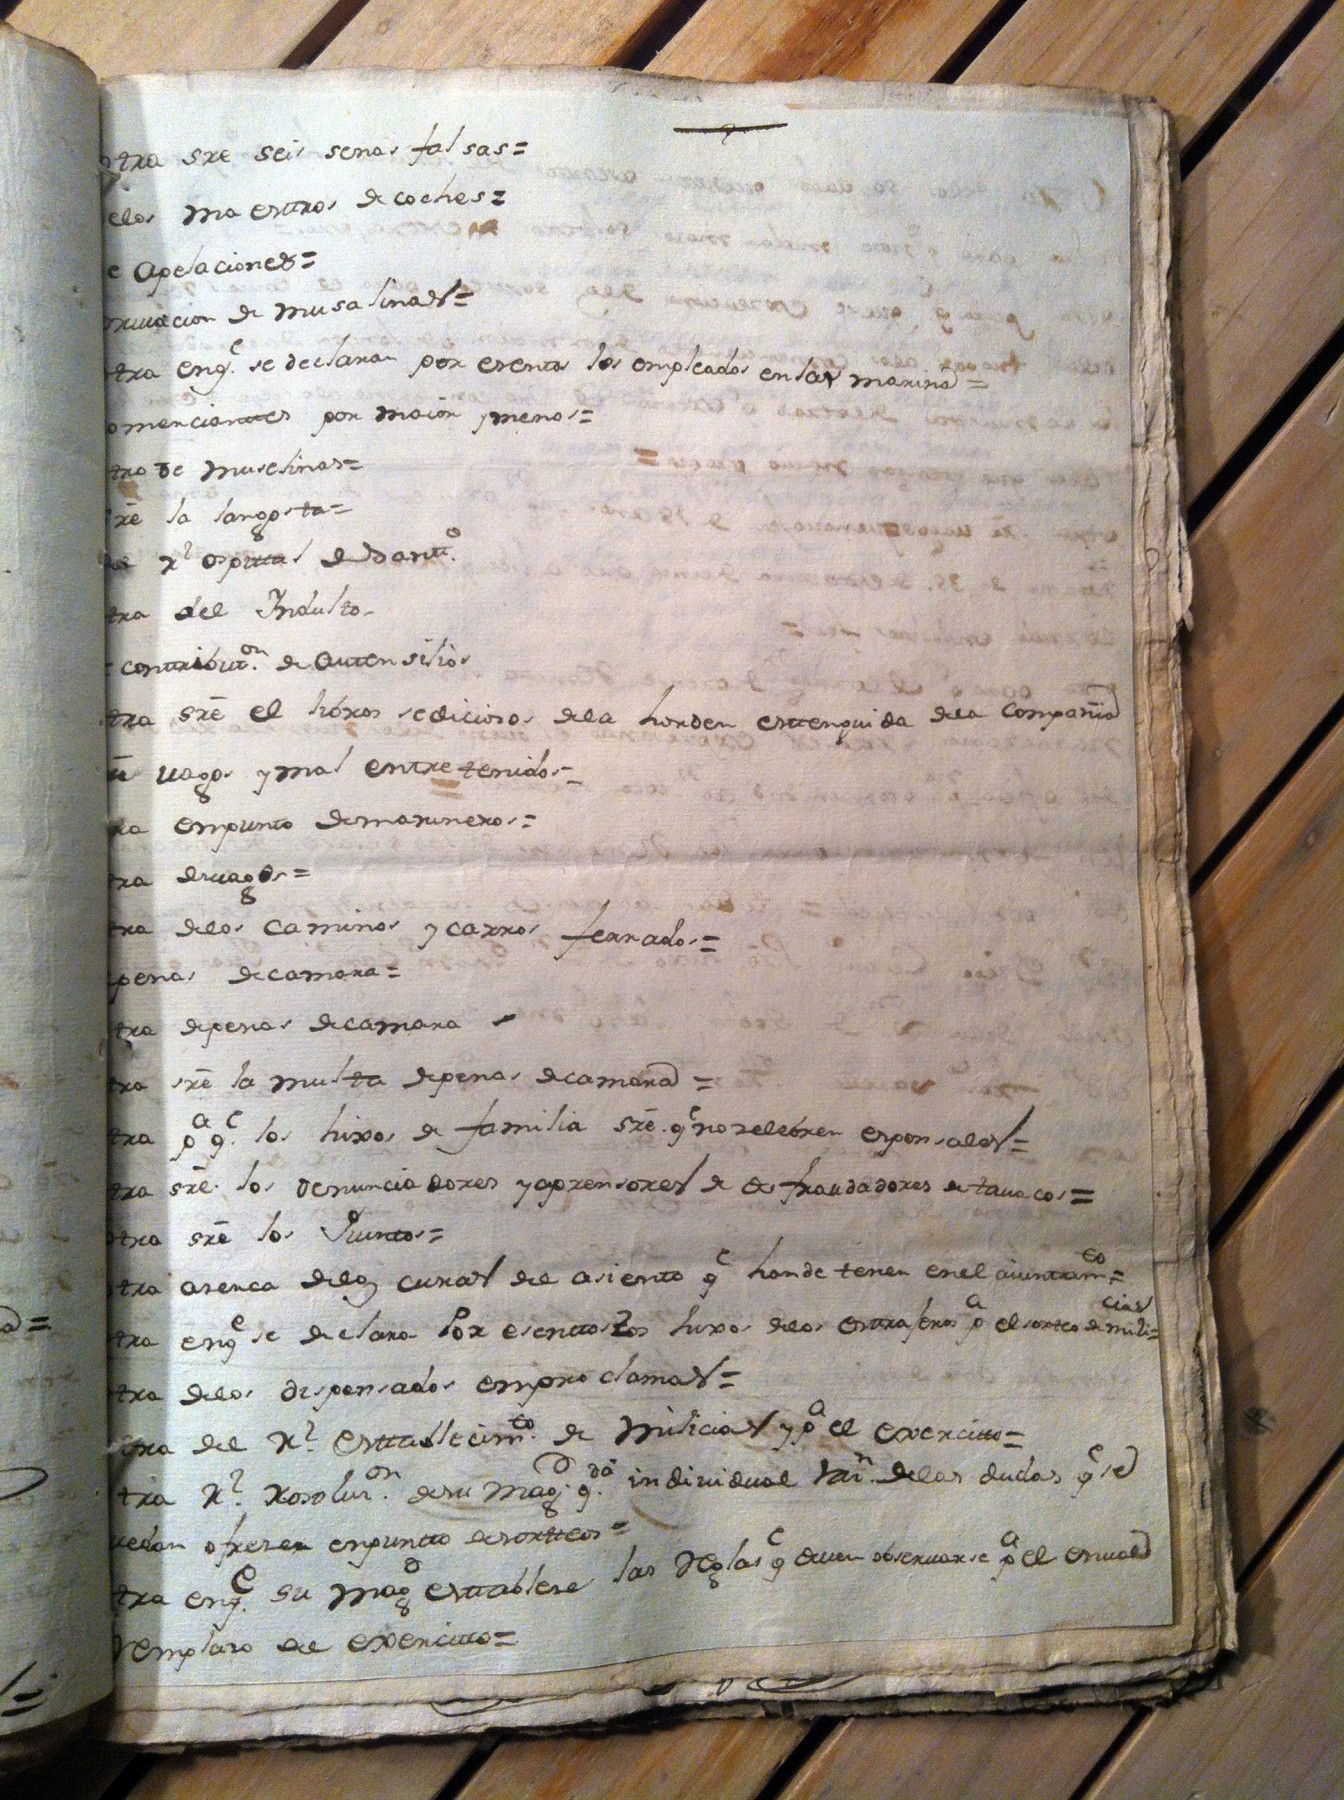 otra sre seis senas falsas=
elos maestros de coches=
e Apelaciones=
de musalinas=
tra enq.e se declaran por esentos los empleados enlas marina=
omerciantes por maior y menos=
tro de muselinas=
sre la langosta=
Rl ospital de Santto.
tra del Yndulto-
contribuon. de auttensilios
tra sre el libros sediciosos dela horden esttenguida dela Compañia
uagos y mal entretenidos=
tra empunto demarineros=
tra deuagos=
tra delos caminos y carros ferrados=
penas decamara=
tra depenas decamara -
tra sre la multa depenas decamara=
tra pa qe. los hixos de familia sre. qe no zelebren esponsales=
tra sre. los denunciadores y aprensores de defraudadores de tauacos=
otra sre los Juntos=
otra aserca delos curas de asiento qe han de tener enel aiuntamto=
tra enqe se declara Por esentos los hixos delos esttrajeros pa el sorteo de milicias=
tra delos dispensados emproclamas=
otra del Rl. esttablecimto. de milicias y pa el exercitto=
tra Rl. Resoluon. desu Magd. individual delas dudas qe se
uedan ofrezer enpuntto desortteos=
tra enqe. su Magd esttableze las Reglas qe deuen obseruarse pa el anual
Remplazo del exercitto=